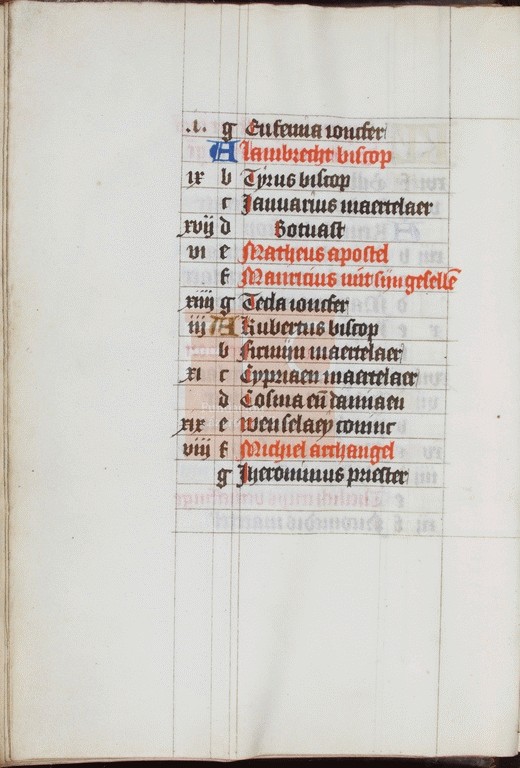 .v. g Eufemia ioncfer
A lambrecht biscop
ix b Tyrus biscop
c Januarius maertelaer
xvij d Gotuast
vi e Matheus apostel
f Mauricius mit sijn geselle
xiiij g Tecla ioncfer
iij A Rubertus biscop
b Firmijn maertelaer
xi c Cypriaen maertelaer
d Cosma eñ damiaen
xix e wenselaey coninc
viij f Michiel archangel
g Jheronimus priester